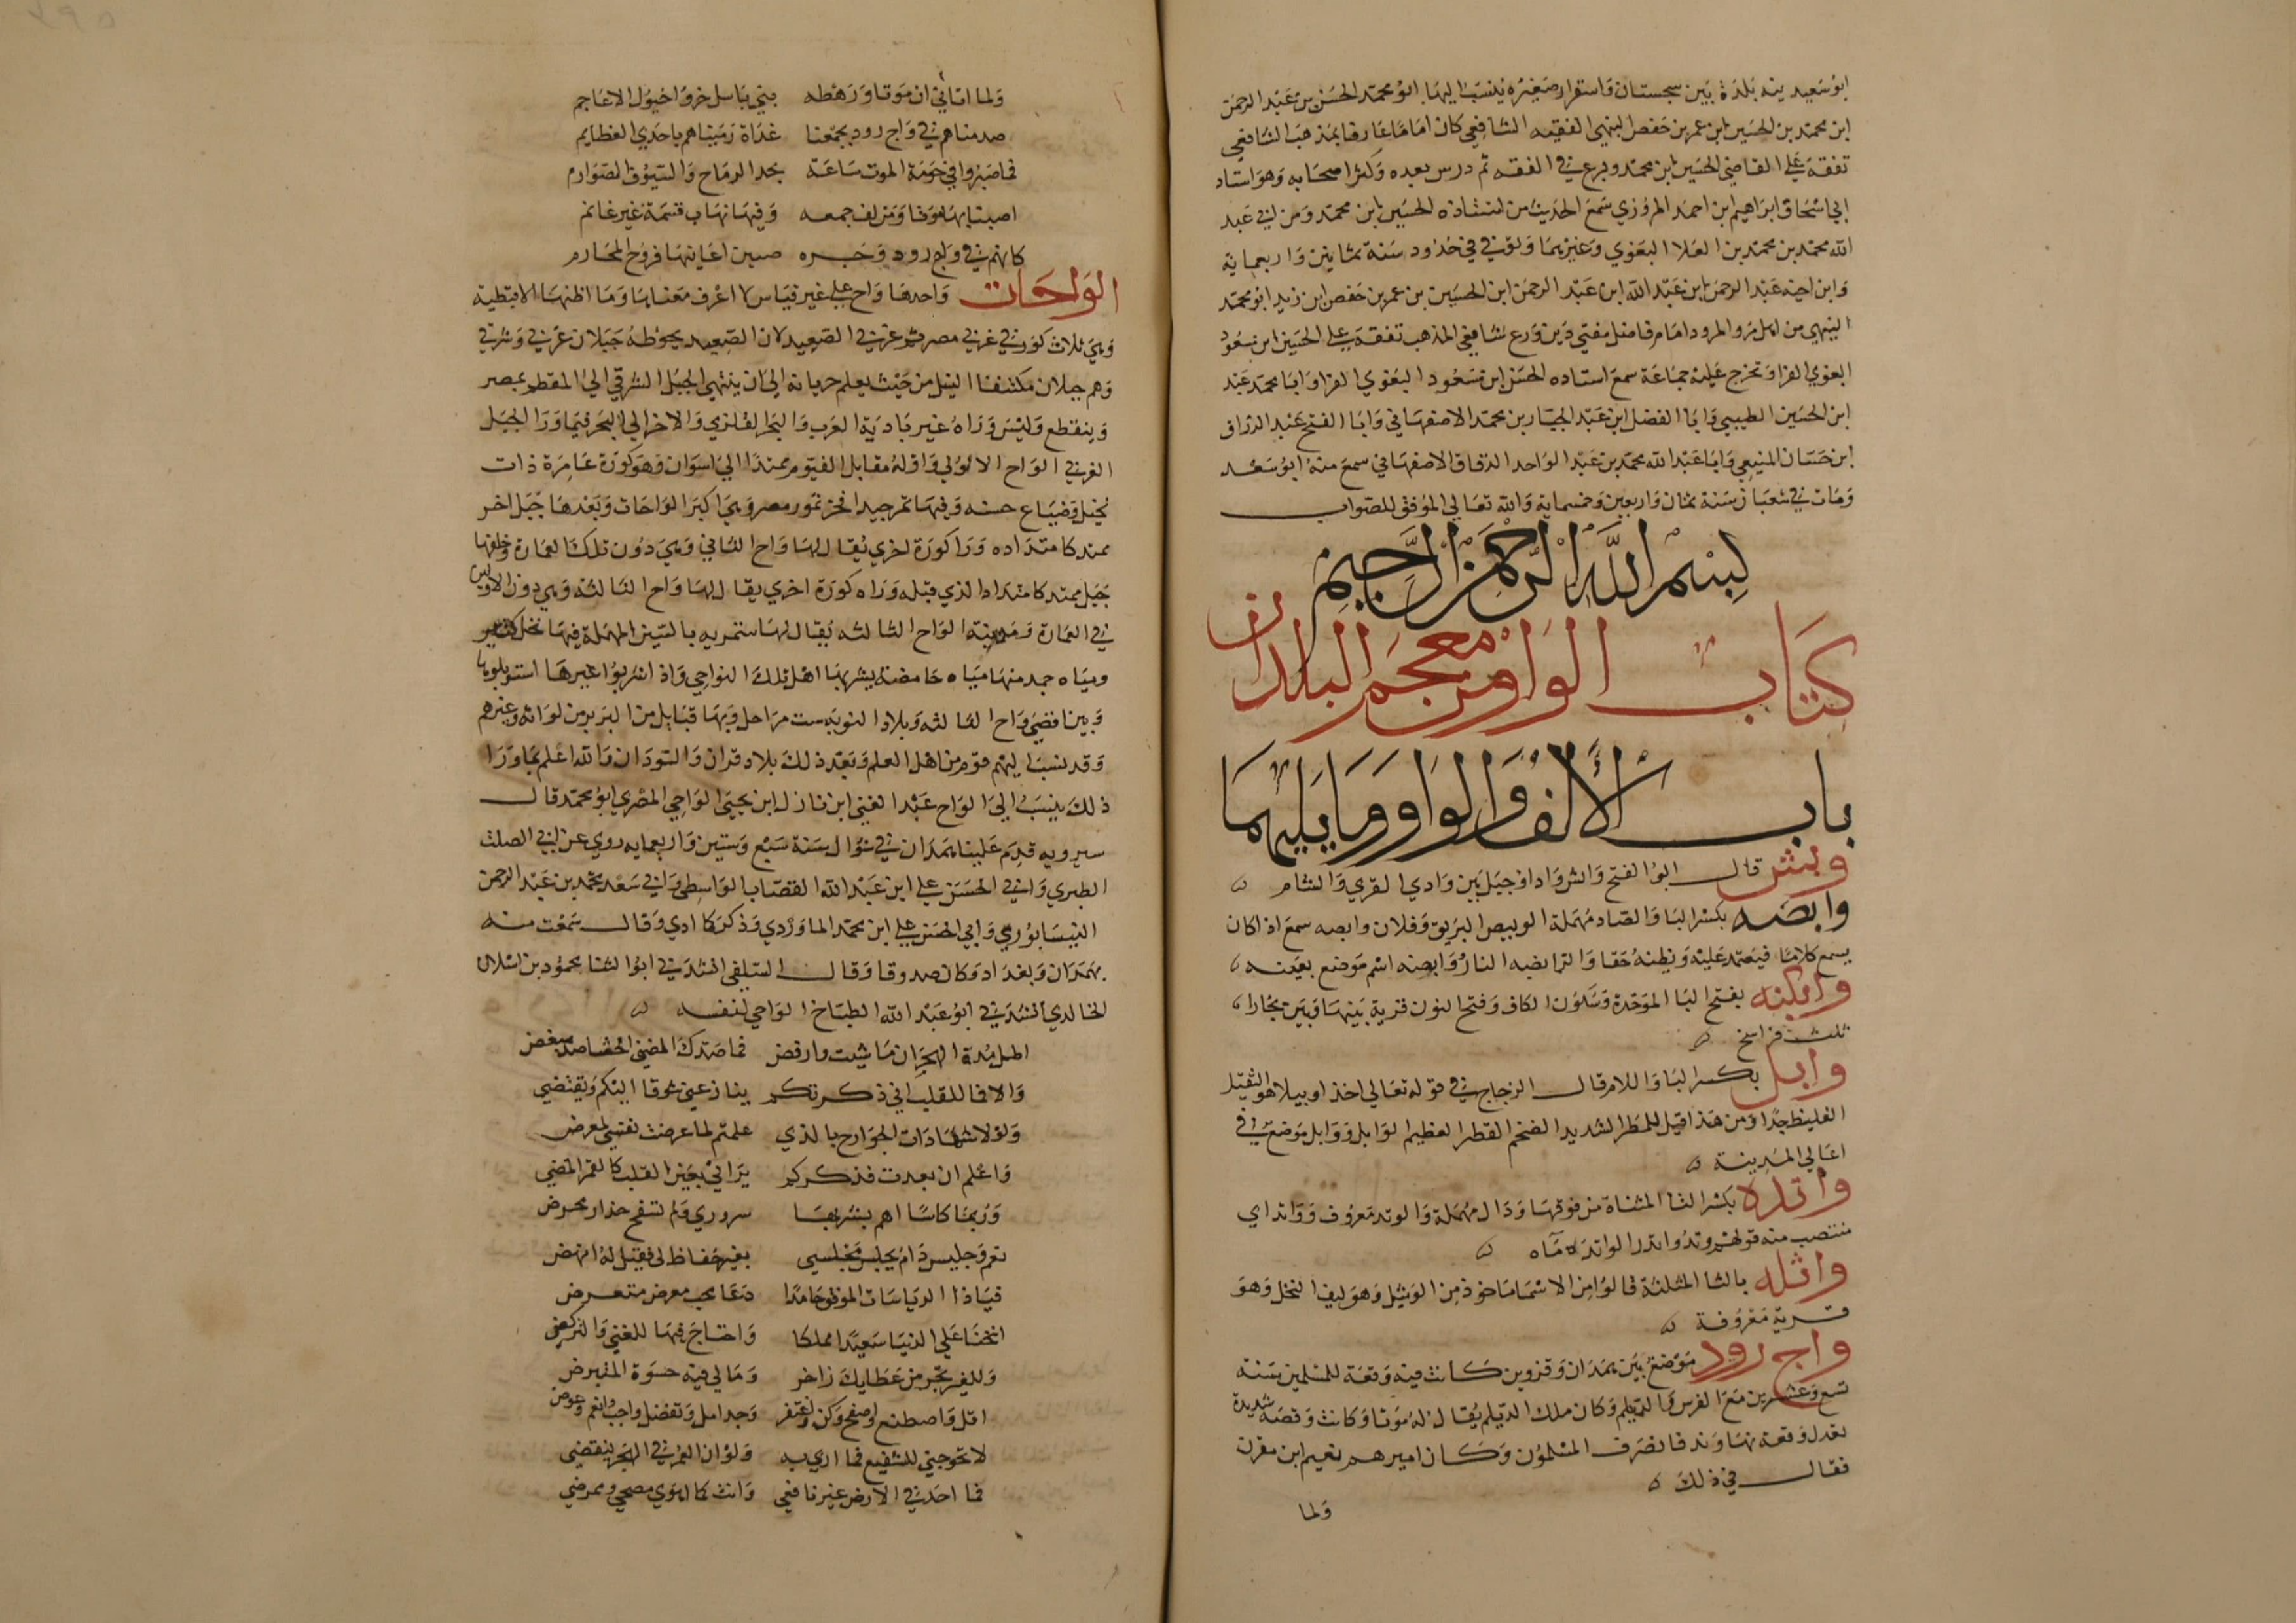 ابو سعيد ينه بلدة بين سجستان واسفزار صغيره ينسب اليها ابو محمد الحسن بن عبد الرحمن
ابن محمد بن الحسين ابن عمر بن حفص النيهي الفقيه الشافعي كان اماما عارفا بمذهب الشافعي
تفقه على القاضي الحسين ابن محمد وبرع في الفقه ثم درس بعده وكثر اصحابه وهو استاد
ابي اسحاق ابراهيم ابن احمد المروزي سمع الحديث من استاذه الحسين ابن محمد ومن ابي عبد
الله محمد بن محمد بن العلا البغوي وغيرهما وتوفي في حدود سنة ثمانين واربعماية
وابن اخيه عبد الرحمن ابن عبد الله ابن عبد الرحمن ابن الحسين بن عمر بن حفص ابن زيد ابو محمد
النيهي من اهل مرو المرود امام فاضل مفتي دين ورع شافعي المذهب تفقه على الحسين ابن مسعود
البغوي الفرا وتخرج عليه جماعة سمع استاده الحسن ابن مسعود البغوي الفرا وابا محمد عبد
ابن الحسين الطيبي وابا الفضل ابن عبد الجبار بن محمد الاصفهاني وابا الفتح عبد الرزاق
ابن حسان المنيعي وابا عبد الله محمد بن عبد الواحد الدقاق الاصفهاني سمع منه ابو سعد
ومات في شعبان سنة ثمان واربعين وخمسماية والله تعالى الموفق للصواب
بسم الله الرحمن الرحيم
كتاب الواو من معجم البلدان
باب الالف والواو وما يليهما
وابش قال ابو الفتح وابش واد او جبل بين وادي القرى والشام
وابصه بكسر البا والصاد مهملة الوبيص البريق وفلان وابصه سمع اذا كان
يسمع كلاما فيعتمد عليه ويظنه حقا والوابضه النار وابصه اسم موضع بعينه
وابكنه بفتح البا الموحدة وسكون الكاف وفتح النون قرية بينها وبين بخارا
ثلث فراسخ
وابل بكسر البا واللام قال الزجاج في قوله تعالى اخذا وبيلا هو الثقيل
الغليظ جدا ومن هذا قيل للمطر الشديد الضخم القطر العظيم الوابل ووابل موضع في
اعالي المدينة
واتده بكسر التا المثناة من فوقها ودال مهملة والوتد معروف وواتد اي
منتصب منه قولهم وتد واتد والواتده ماه
واثله بالثا المثلثة قالوا من الاسما ماخوذ من الوثيل وهو ليف النخل وهو
قرية معروفة
واج رود موضع بين همدان وقزوين كانت فيه وقعة للمسلمين سنة
تسع وعشرين مع الفرس والديلم وكان ملك الديلم يقال له موتا وكانت وقعة شديدة
تعدل وقعة نهاوند فانصرف المسلمون وكان اميرهم نعيم ابن مقرن
فقال في ذلك
ولما
ولما اتاني ان موتا ورهطه بني باسل خروا خيول الاعاجم
صدمناهم في واج رود بجمعنا غداة رميناهم باحدى العظايم
فما صبروا في حومة الموت ساعة بحد الرماح والسيوف الصوارم
اصبنا بها موتا ومن لف جمعه وفيها نهاب قسمة غير غانم
كانهم في واج رود وجره ضيين اغانتها فروخ المخارم
الواحات واحدها واح على غير قياس لا اعرف معناها وما اظنها الا قبطية
وهي ثلاث كور في غربي مصر ثم غربي الصعيد لان الصعيد يحوطه جبلان غربي وشرقي
وهم جبلان مكتنفا النيل من حيث يعلم جريانه الى ان ينتهي الجبل الشرقي الى المقطم بمصر
وينقطع وليس وراه غير بادية العرب والبحر القلزمي والاخر الى البحر فيما ورا الجبل
الغربي الواح الاولى واوله مقابل الفيوم ممتدا الى اسوان وهو كورة عامرة ذات
نخيل وضياع حسنه وفيها تمر جيد افخر تمور مصر وهي اكبر الواحات وبعدها جبل اخر
ممتد كامتداده ورا كورة اخرى يقال لها واح الثاني وهي دون تلك العمارة وخلفها
جبل ممتد كامتداد الذي قبله وراه كورة اخرى يقال لها واح الثالثه وهي دون الاوليين
في العمارة ومدينة الواح الثالثه يقال لها سنتريه بالسين المهملة فيها نخل كثير
ومياه جمه منها مياه حامضة يشربها اهل تلك النواحي واذا شربوا غيرها استوبلوها
وبين اقصى واح الثالثه وبلاد النوبه ست مراحل وبها قبايل من البربر من لواته وغيرهم
وقد نسب اليهم قوم من اهل العلم وبعد ذلك بلاد فزان والسودان والله اعلم بما ورا
ذلك ينسب الى الواح عبد الغني ابن نازل ابن يحيى الواحي المصري ابو محمد قال
سيرويه قدم علينا همدان في شوال سنة سبع وستين واربعمايه روى عن ابي الصلت
الطبري وابي الحسن علي ابن عبد الله القصاب الواسطي وابي سعد محمد بن عبد الرحمن
النيسابوري وابي الحسن علي ابن محمد الماوردي وذكر كا ادي وقال سمعت منه
بهمدان وبغداد وكان صدوقا وقال السلفي انشدني ابو الثنا محمود بن اسلان
الخالدي انشدني ابو عبد الله الطباخ الواحي لنفسه
اطل مدة الهجران ما شيت وارفض فما صدك المضني الحشا صد مبغض
والا فا للقلب اني ذكرتكم ينازعني شوقا اليكم ويقتضي
ولولا شهادات الجوارح بالذي علمتم لما عرضت نفسي لمعرض
واعلم ان بعدت فذكركم يراني بعين القلب كالقمر المضي
وربما كاسا اهم بشربها سروري ولم تسفح حذار محرض
نعم وجليس دام يجلس مجلسي بغير حفاظ لي فقيل له انهض
فياذا الرياسات الموفق حامدا دعا محب معرض متعرض
اتحنا على الدنيا سعيدا مملكا واحتاج فيها للغنى والتركض
ولليم بحر من عطاياك زاخر وما لي فيه حسوة المتبرض
اقل واصطنع واصفح وكن واغتفر وجد امل وتفضل واحب وانعم وعوض
لا تحوجني للشفيع فما اري به ولو ان العمر في الهجر ينقضي
فما احد في الارض غير نافعي وانت كما اهوى مصحي وممرضي